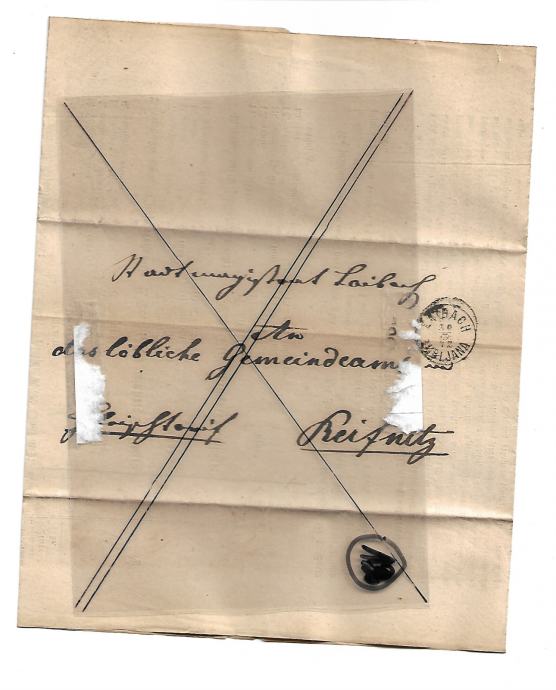 Stadtmagistrat Laibach
An
das löbliche Gemeindeamt
Reifnitz
LAIBACH
LJUBLJANA